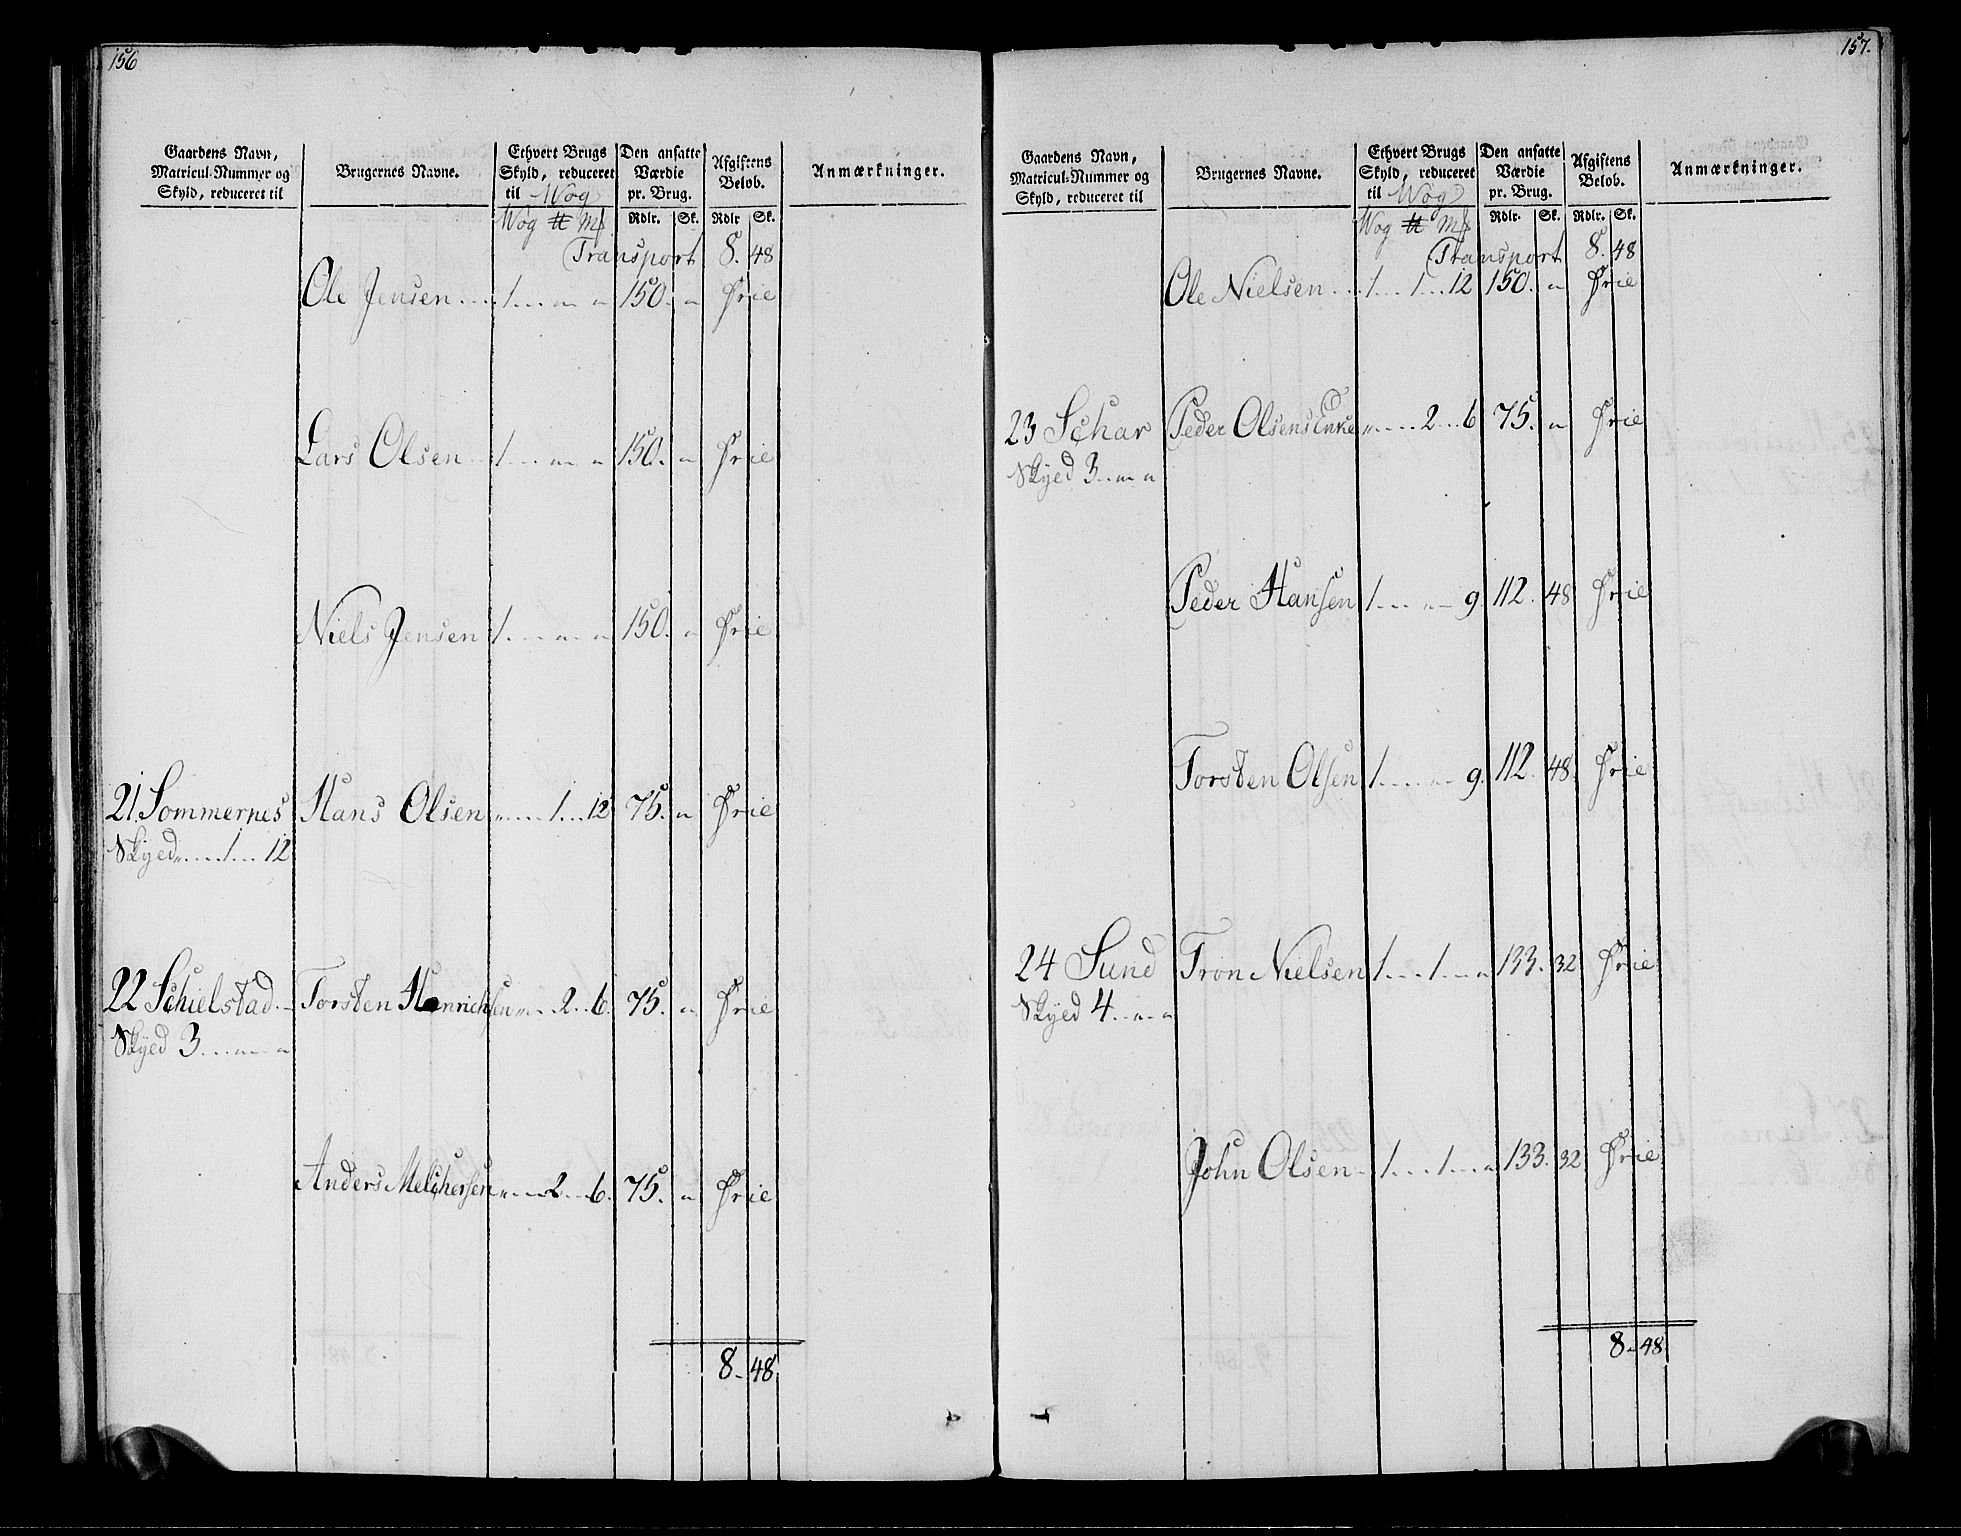 156
Gaardens Navn, Matricul-Nummer og Skyld, reduceret til | Brugernes Navne. | Ethvert Brugs Skyld, reduceret til Wog | Den ansatte Værdie pr. Brug. | Afgiftens Beløb. | Anmærkninger.
Wog ℔ Mk | Rdlr. Sk. | Rdlr Sk.
Transport 8. 48
Ole Jensen 1 „ „ 150. „ Frie
Lars Olsen 1 „ „ 150. „ Frie
Niels Jensen 1 „ „ 150. „ Frie
21 Sommernes Hans Olsen „ 1 12 75. „ Frie
Skyed „ 1 12
22 Schielstad Torsten Henrichsen „ 2 6. 75. „ Frie
Skyed 3 „ „
Anders Melchersen „ 2 6. 75. „ Frie
8 48
157.
Gaardens Navn, Matricul-Nummer og Skyld, reduceret til | Brugernes Navne. | Ethvert Brugs Skyld, reduceret til Wog | Den ansatte Værdie pr. Brug. | Afgiftens Beløb. | Anmærkninger.
Wog ℔ Mk | Rdlr. Sk. | Rdlr. Sk.
Transport 8. 48
Ole Nielsen 1 1 12 150. „ Frie
23 Schar Peder Olsens Enke „ 2 6 75. „ Frie
Skyed 3 „ „
Peder Hansen 1 „ 9. 112. 48 Frie
Torsten Olsen 1 „ 9. 112. 48. Frie
24 Sund Tron Nielsen 1 1 „ 133. 32 Frie
Skyed 4 „ „
John Olsen 1 1 „ 133. 32 Frie
8 48